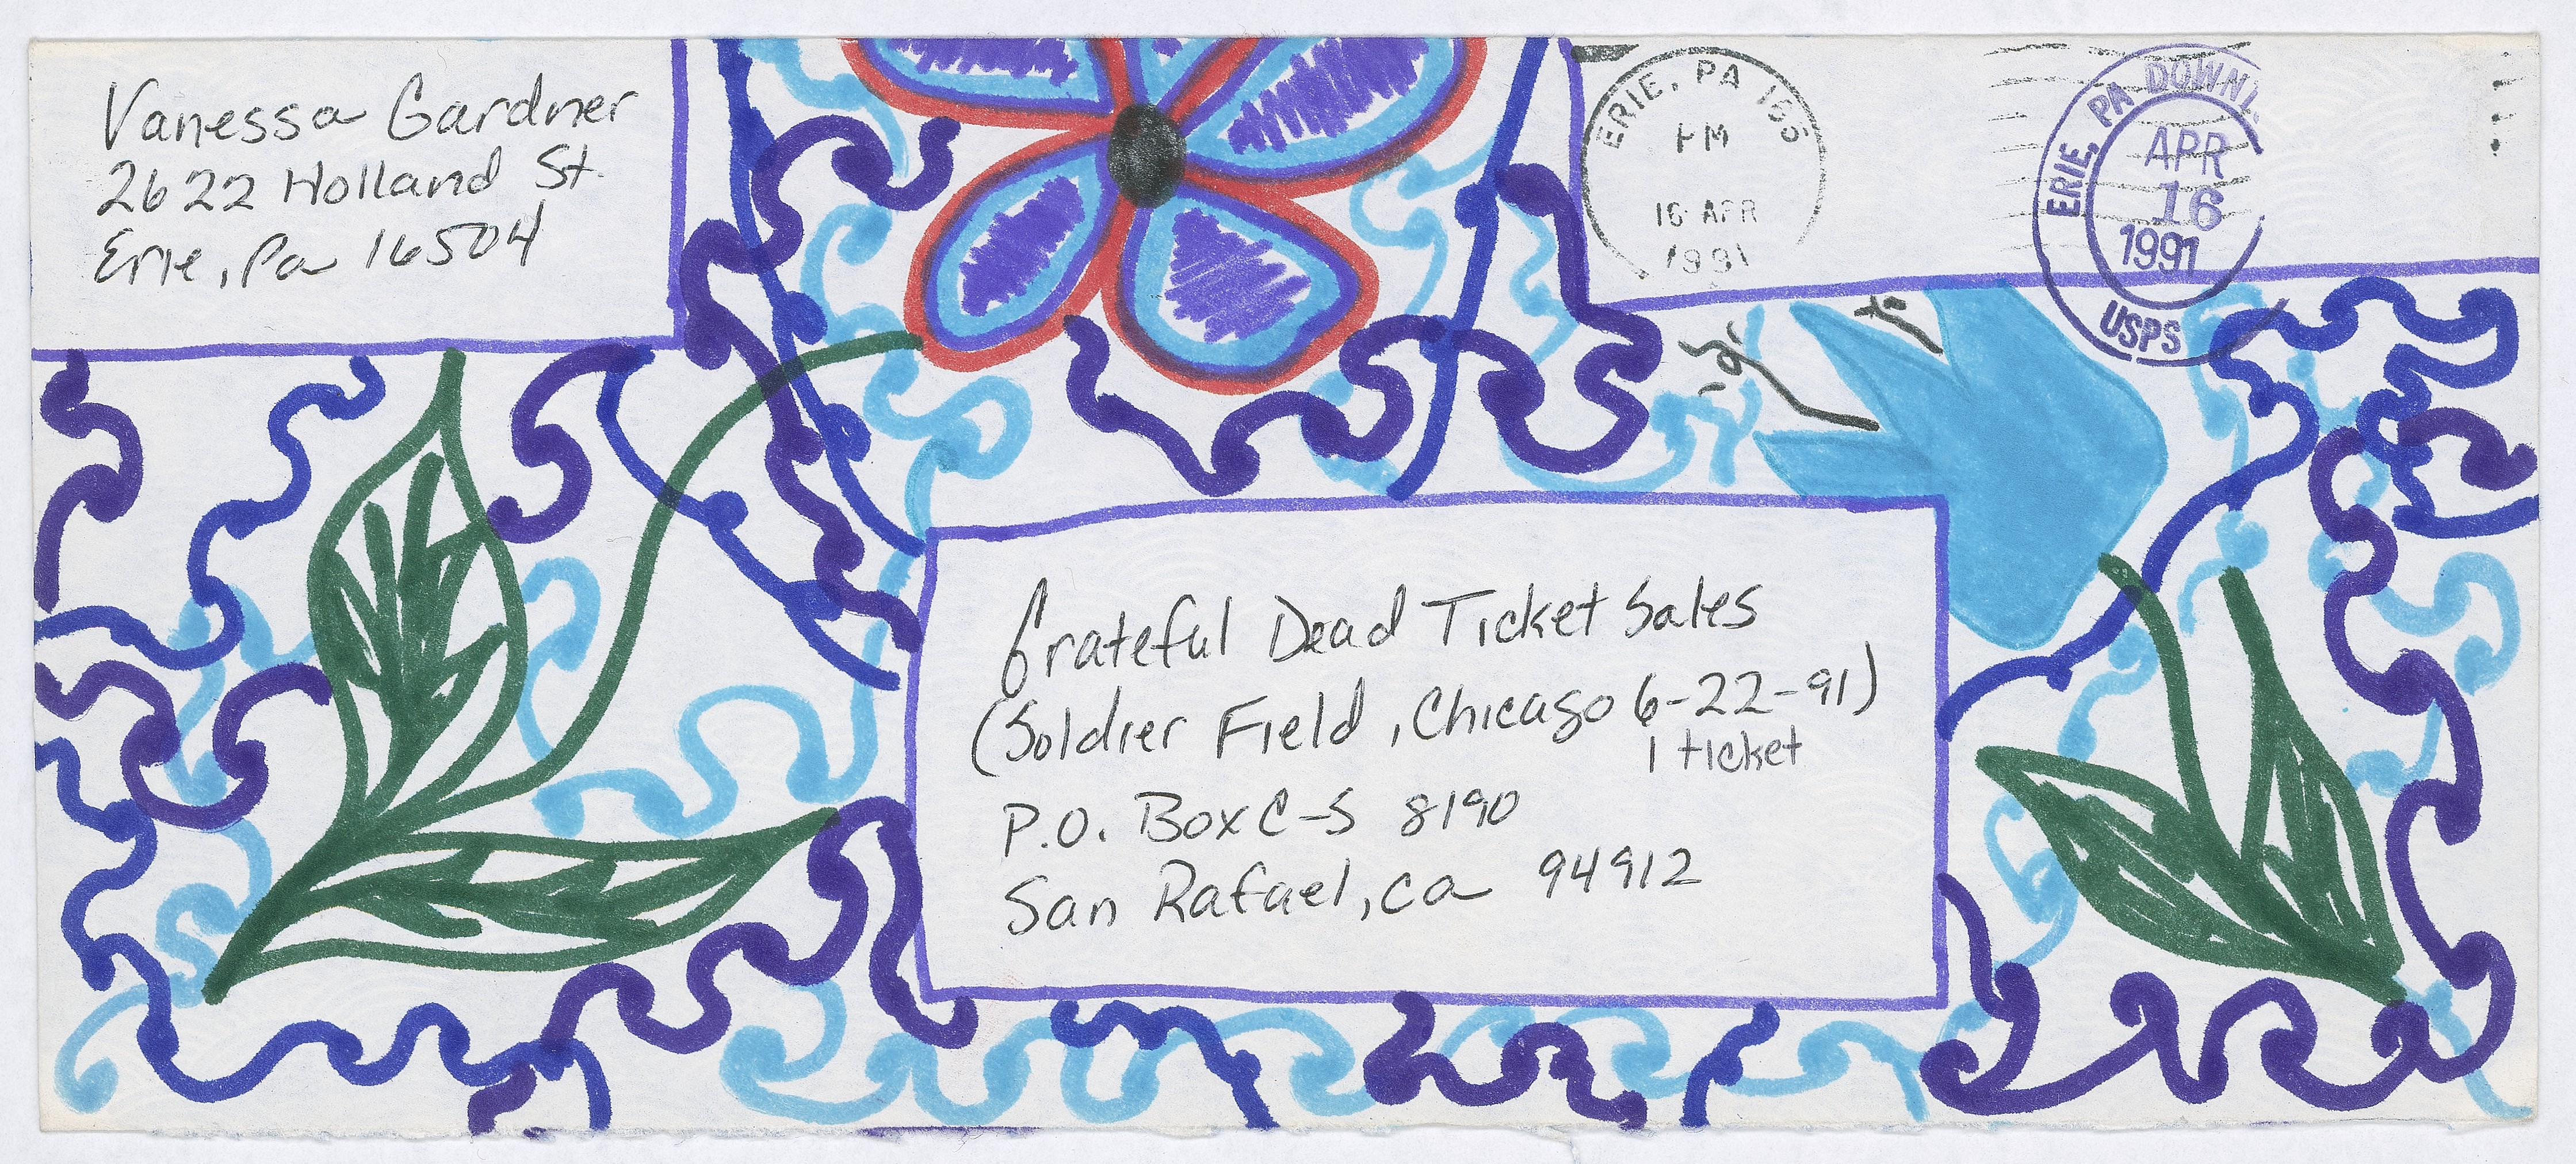 Vanessa Gardner
2622 Holland St.
Erie, Pa 16504
ERIE, PA 165
PM
16 APR
1991
ERIE, PA DOWN
APR
16
1991
USPS
Grateful Dead Ticket Sales
(Soldier Field, Chicago 6-22-91)
1 ticket
P.O. Box C-S 8190
San Rafael, Ca 94912